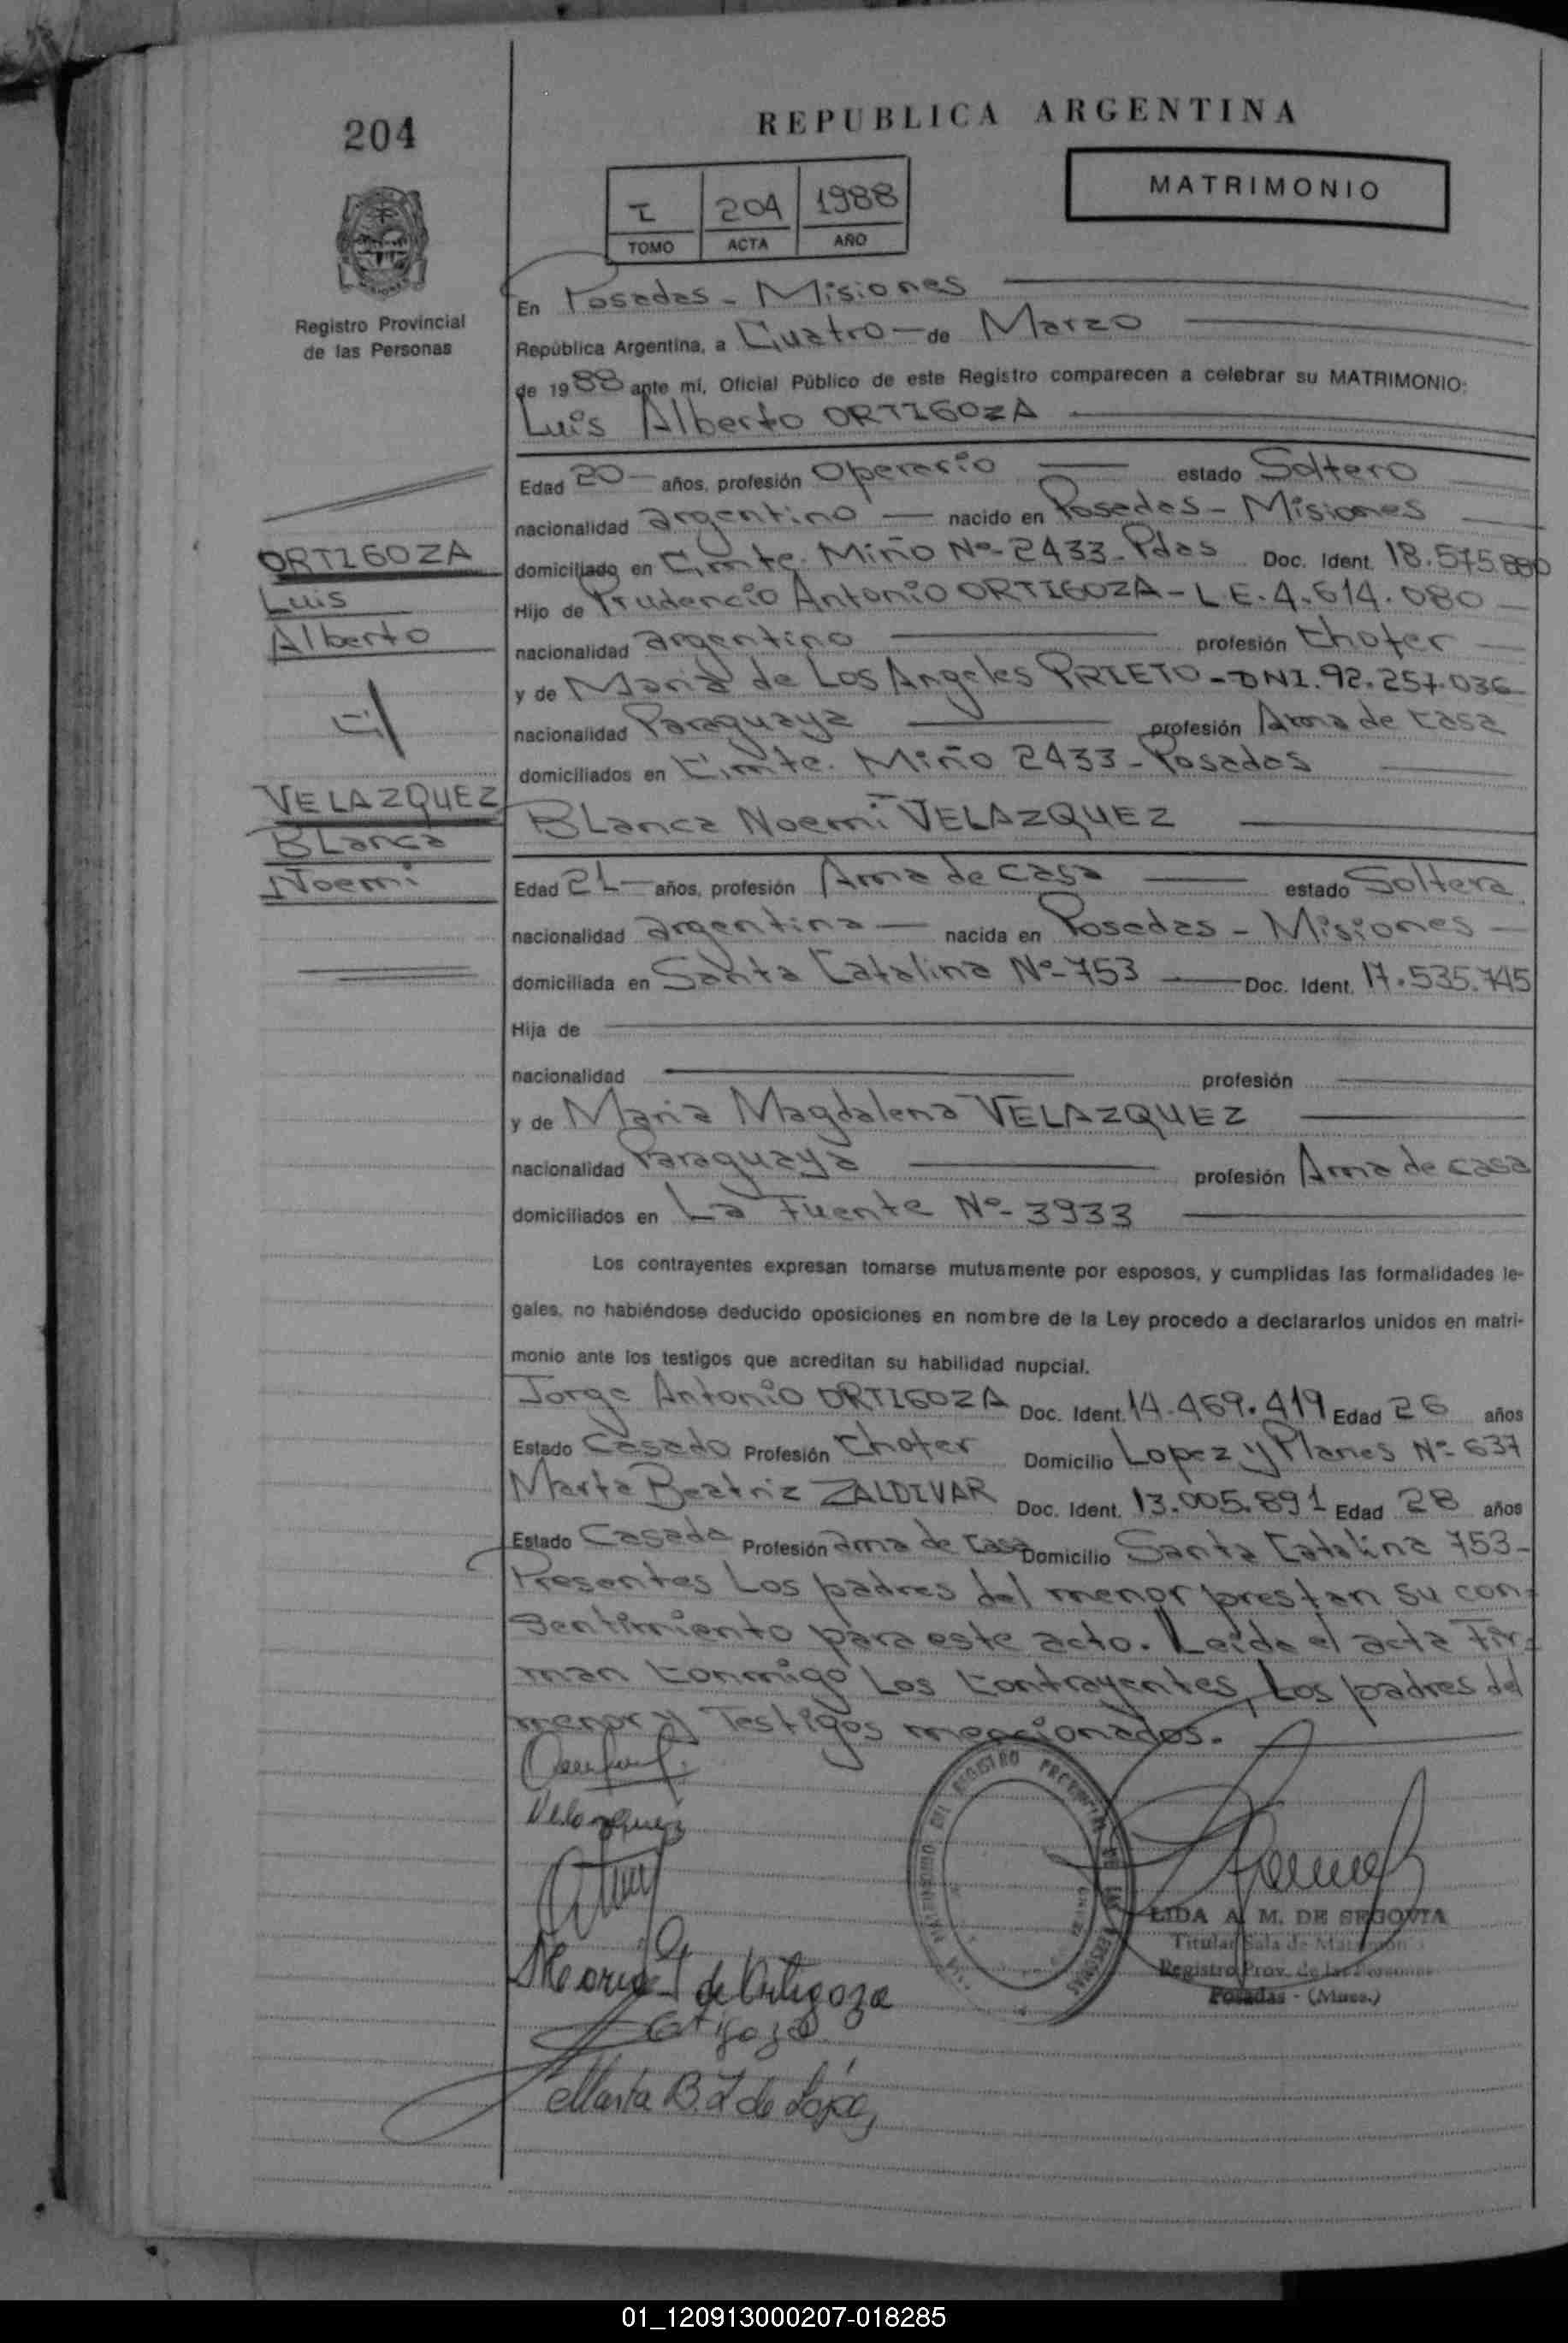 204
REPUBLICA ARGENTINA
MATRIMONIO
I 204 1988
TOMO ACTA AÑO
Registro Provincial
de las Personas
En Posadas - Misiones
República Argentina, a Cuatro de Marzo
de 1988 ante mí, Oficial Público de este Registro comparecen a celebrar su MATRIMONIO:
Luis Alberto ORTIGOZA
Edad 20 años, profesión Operario estado Soltero
nacionalidad argentino nacido en Posadas - Misiones
domiciliado en Cmte. Miño Nº 2433 - Pdas Doc. Ident. 18.575.880
Hijo de Prudencio Antonio ORTIGOZA - L.E. 4.614.080
nacionalidad argentino profesión Chofer
y de Maria de Los Angeles PRIETO - DNI. 92.257.036
nacionalidad Paraguaya profesión Ama de casa
domiciliados en Cmte. Miño 2433 - Posadas
ORTIGOZA
Luis
Alberto
c/
VELAZQUEZ
Blanca
Noemi
Blanca Noemi VELAZQUEZ
Edad 21 años, profesión Ama de casa estado Soltera
nacionalidad argentina nacida en Posadas - Misiones
domiciliada en Santa Catalina Nº 753 Doc. Ident. 17.535.745
Hija de
nacionalidad profesión
y de Maria Magdalena VELAZQUEZ
nacionalidad Paraguaya profesión Ama de casa
domiciliados en La Fuente Nº 3933
Los contrayentes expresan tomarse mutuamente por esposos, y cumplidas las formalidades le-
gales, no habiéndose deducido oposiciones en nombre de la Ley procedo a declararlos unidos en matri-
monio ante los testigos que acreditan su habilidad nupcial.
Jorge Antonio ORTIGOZA Doc. Ident. 14.469.419 Edad 26 años
Estado Casado Profesión Chofer Domicilio Lopez y Planes Nº 637
Marta Beatriz ZALDIVAR Doc. Ident. 13.005.891 Edad 28 años
Estado Casada Profesión ama de casa Domicilio Santa Catalina 753-
Presentes Los padres del menor prestan su con-
sentimiento para este acto. Leída el acta fir-
man conmigo Los contrayentes, Los padres del
menor y Testigos mencionados.
Velazquez
de Ortigoza
Ortigoza
Marta B. Z de López
LIDA A. M. DE SEGOVIA
Titular Sala de Matrimonio
Registro Prov. de las Personas
Posadas - (Mnes.)
01_120913000207-018285